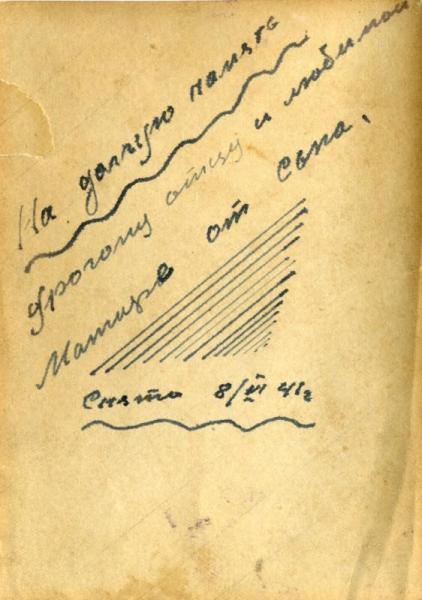 На долгую память
дрогому отцу и любимой
Матире от Сына.
Снято 8/VI 41г